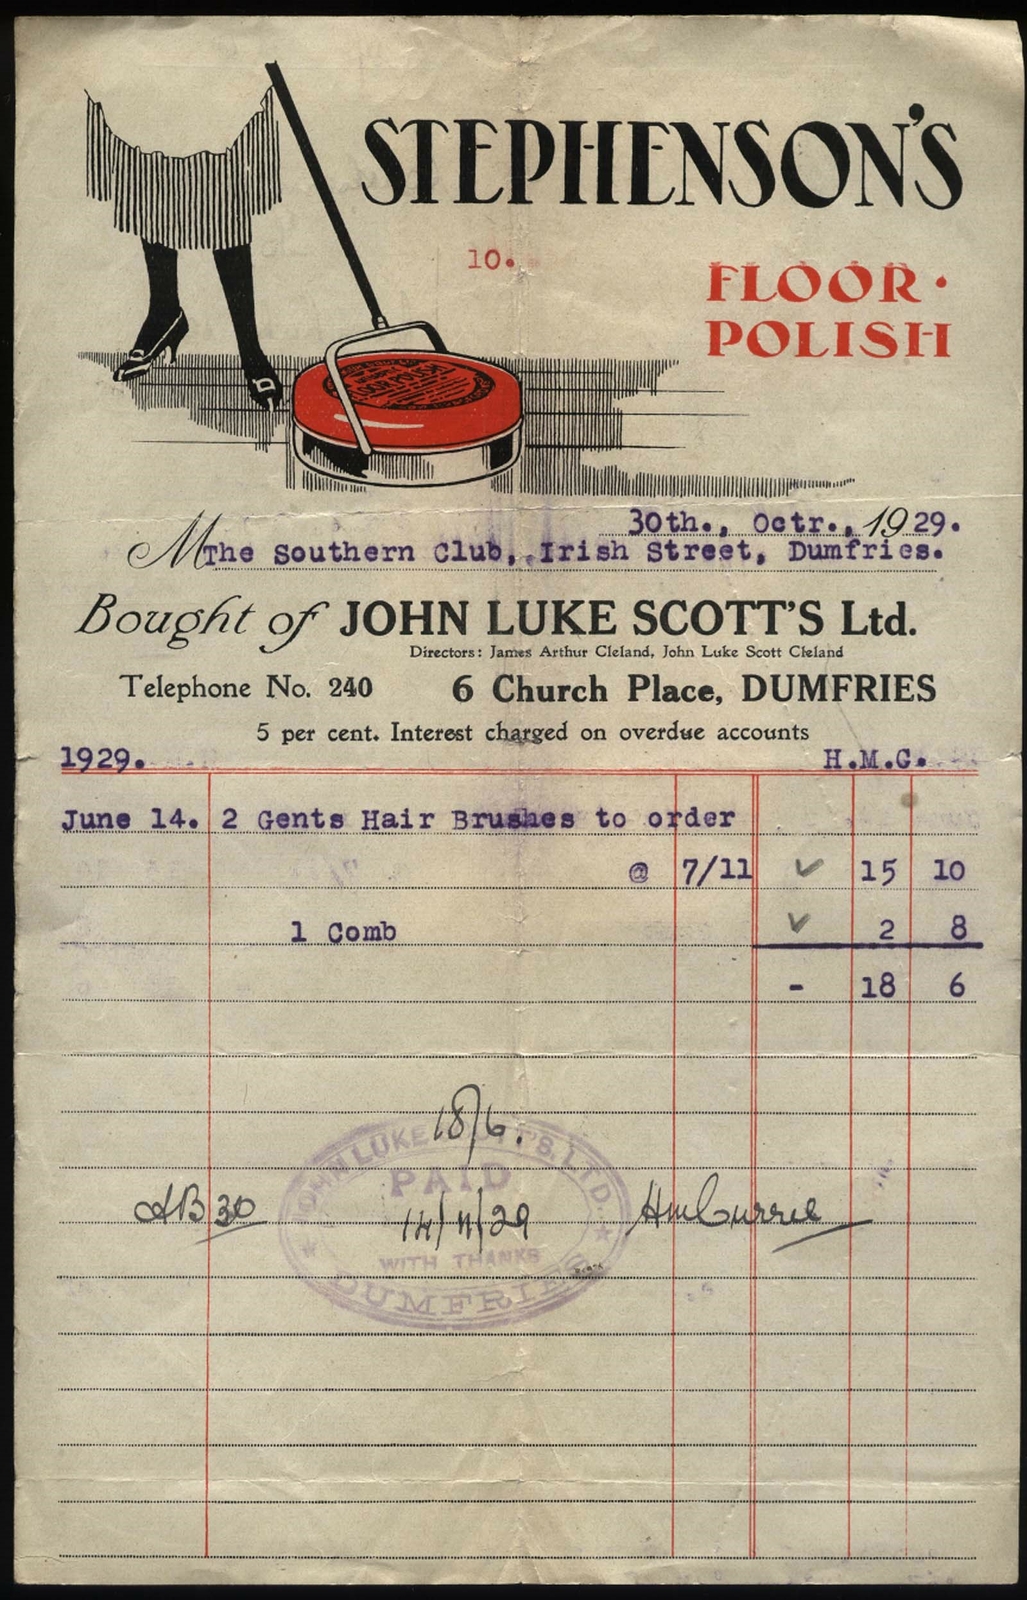 STEPHENSON'S
10.
FLOOR·
POLISH
FLOOR POLISH
30th., Octr., 1929.
M The Southern Club, Irish Street, Dumfries.
Bought of JOHN LUKE SCOTT'S Ltd.
Directors: James Arthur Cleland, John Luke Scott Cleland
Telephone No. 240 6 Church Place, DUMFRIES
5 per cent. Interest charged on overdue accounts
1929. H.M.G.
June 14. 2 Gents Hair Brushes to order
@ 7/11 ✓ 15 10
1 Comb ✓ 2 8
- 18 6
18/6.
JOHN LUKE SCOTT'S, LTD.
PAID
30 14/11/29 HmCurrie
WITH THANKS
DUMFRIES